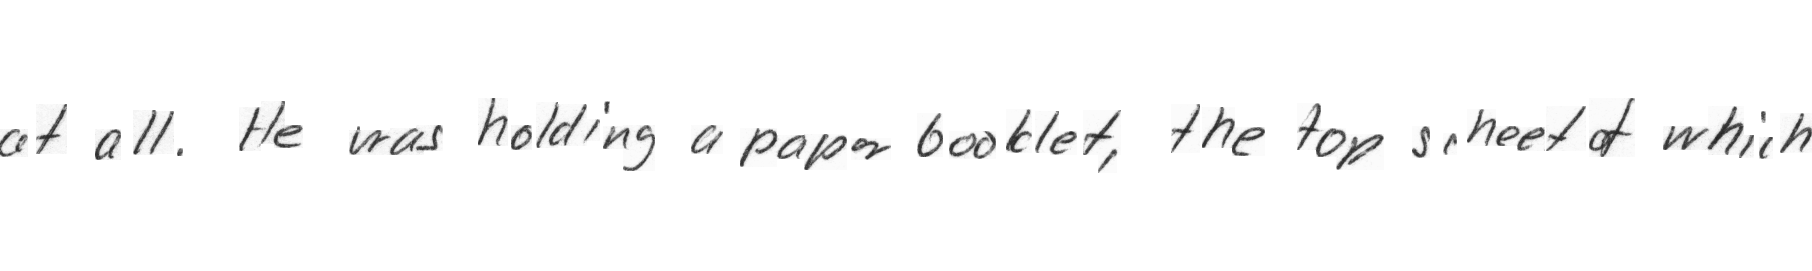 at all. He was holding a paper booklet, the top scheet of which